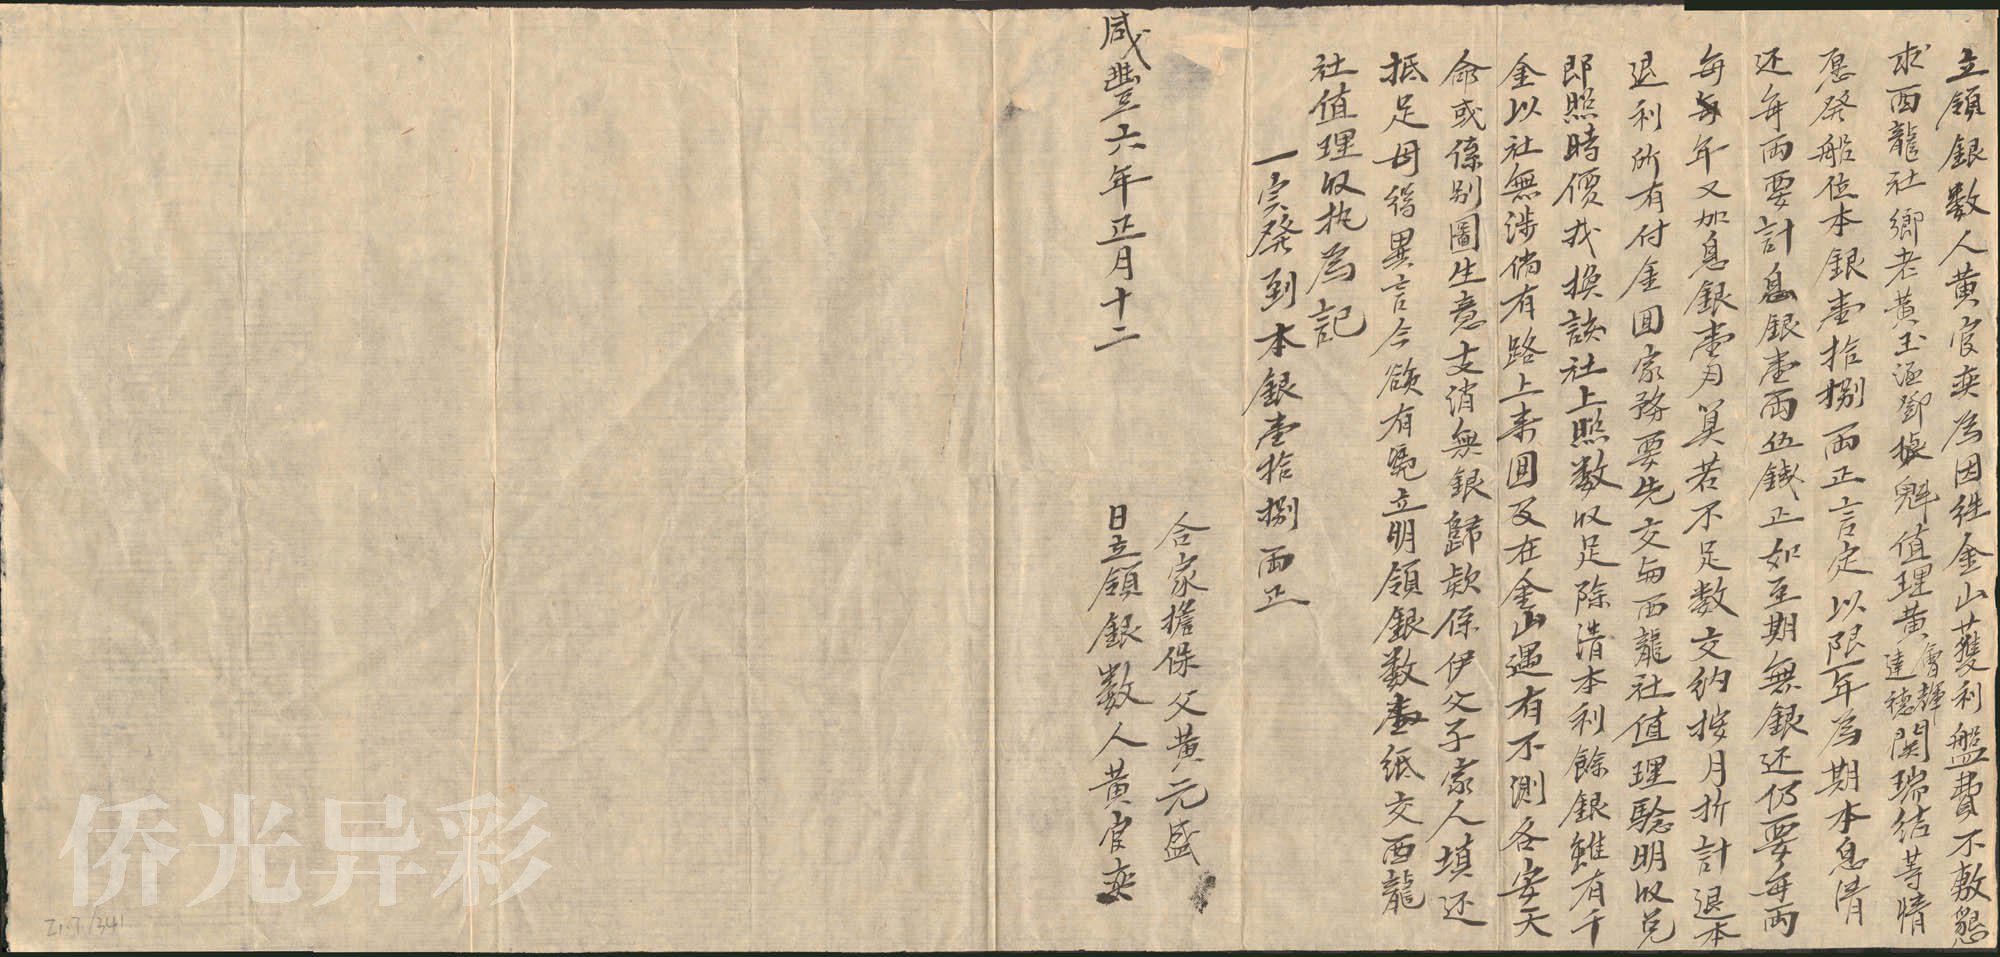 立領銀数人黄官奕為因徃金山獲利盤費不敷懇
求西龍社鄉老黄玉涵鄧捷魁值理黄會輝達德関瑞结等情
愿發船位本銀壹拾捌両正言定以限一年為期本息清
还每両要計息銀壹両伍錢正如至期無銀还仍要每両
每年又加息銀壹月算若不足数交納按月折計退本
退利所有付金囬家務要先交与西龍社值理驗明収兑
即照時價找換該社上照数収足除清本利餘銀雖有千
金以社無涉倘有路上来囬及在金山遇有不測各安天
命或係别圖生意支消無銀歸欵係伊父子家人填还
抵足毋得異言今欲有凭立明領銀数壹紙交西龍
社值理収执為記
一实發到本銀壹拾捌両正
合家擔保父黄元盛
咸豐六年正月十二
日立領銀数人黄官奕
侨光异彩
Z1.7/341